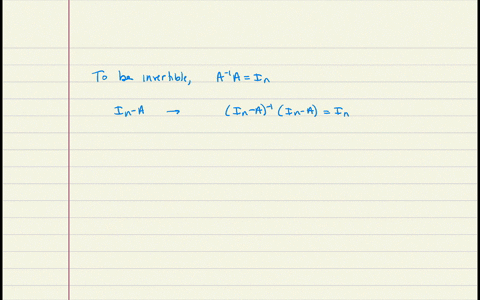 To be invertible, A⁻¹A = Iₙ
Iₙ-A → (Iₙ-A)⁻¹ (Iₙ-A) = Iₙ